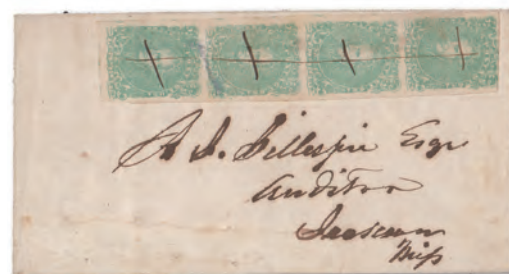 A. J. Gillespie Esqr
Auditor
Jackson
Miss